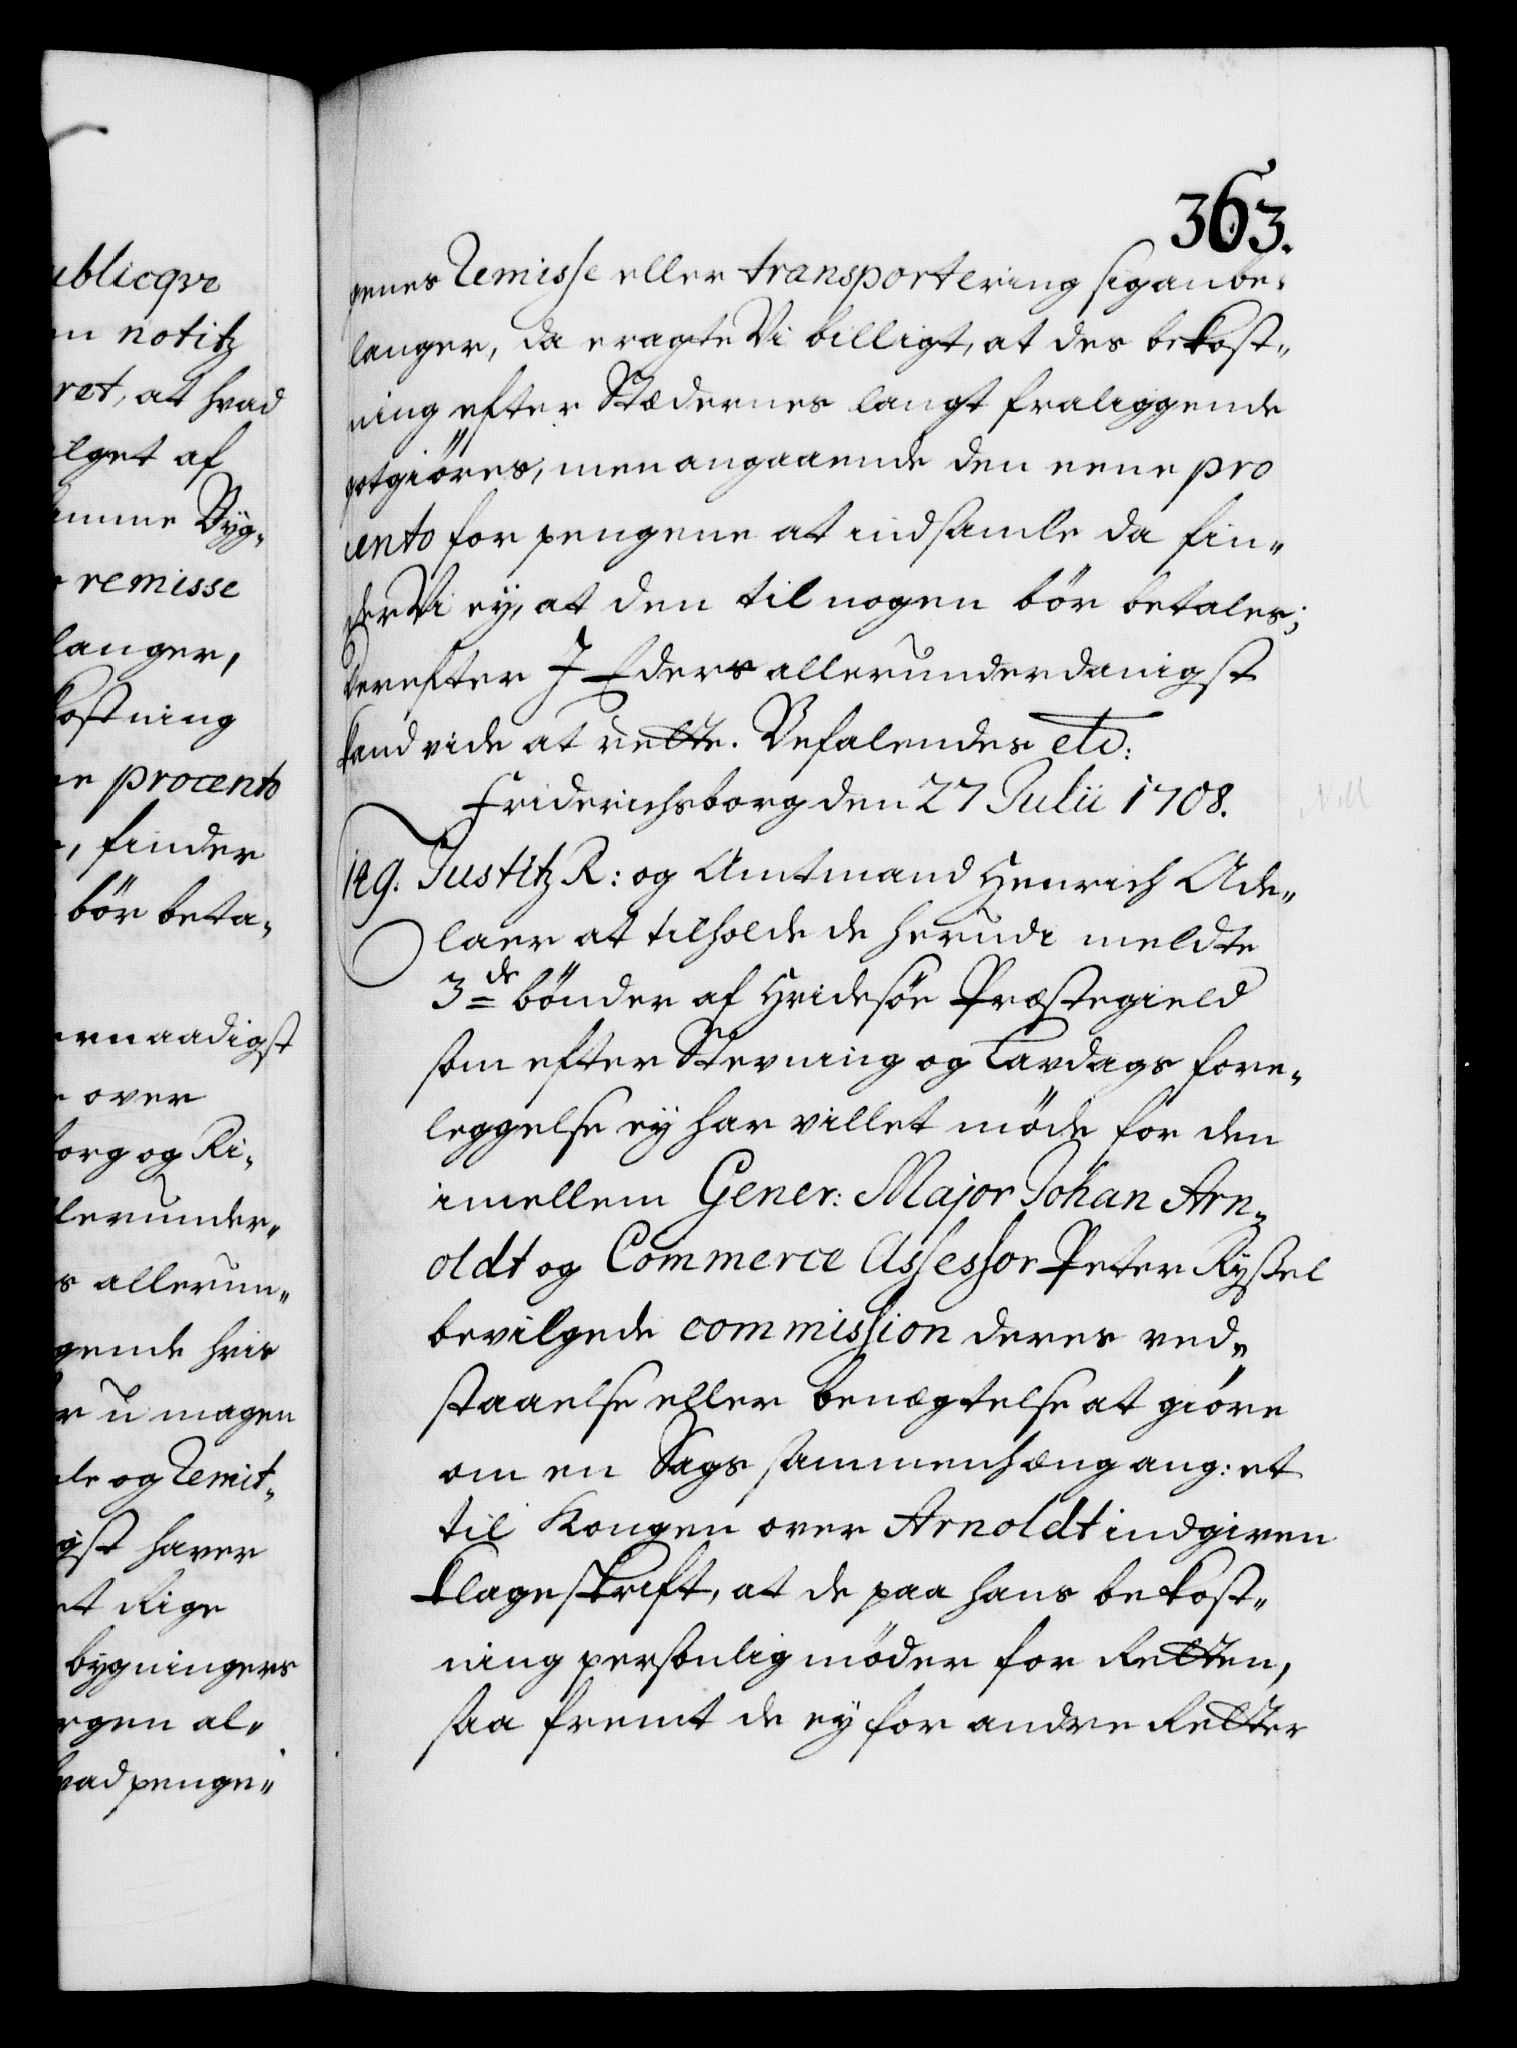 ublicqve
en notitz
ret, at hvad
elget af
amme Byg,,
r remisse
langer,
kostning
ne procento
e, finder
bör beta-
ernaadigst
e over
borg og Ri-
llerunder-
s allerun,,
gende hvis
or umagen
ale og Remit-
igst haver
et Rige
bygningers
rgen al,,
hvad penge,,
363.
genes Remisse eller transportering sig anbe-
langer, da eragte Vi billigt, at des bekost,,
ning efter Stædernes langt fraliggende
gotgiöres, men angaaende den eene pro
cento for pengene at indsamle da fin,,
der Vi ey, at den til nogen bör betales;
Derefter I Eders allerunderdanigst
kand vide at rette. Befalendes etc:
Friderichsborg den 27 Julii 1708.
149. Justitz R: og Amtmand Henrich Ade,,
laer at tilholde de herudi meldte
3de bönder af Hvidesöe Præstegield
som efter Stevning og Lavdags fore-
leggelse ey har villet möde for den
imellem Gener: Major Johan Arn-
oldt og Commerce Assessor Peter Ryssel
bevilgede commission deres ved-
staaelse eller benægtelse at giöre
om en Sags sammenhæng ang: et
til Kongen over Arnoldt indgiven
klageskrift, at de paa hans bekost,,
ning personlig möder for Retten,
saa fremt de ey for andre Retter